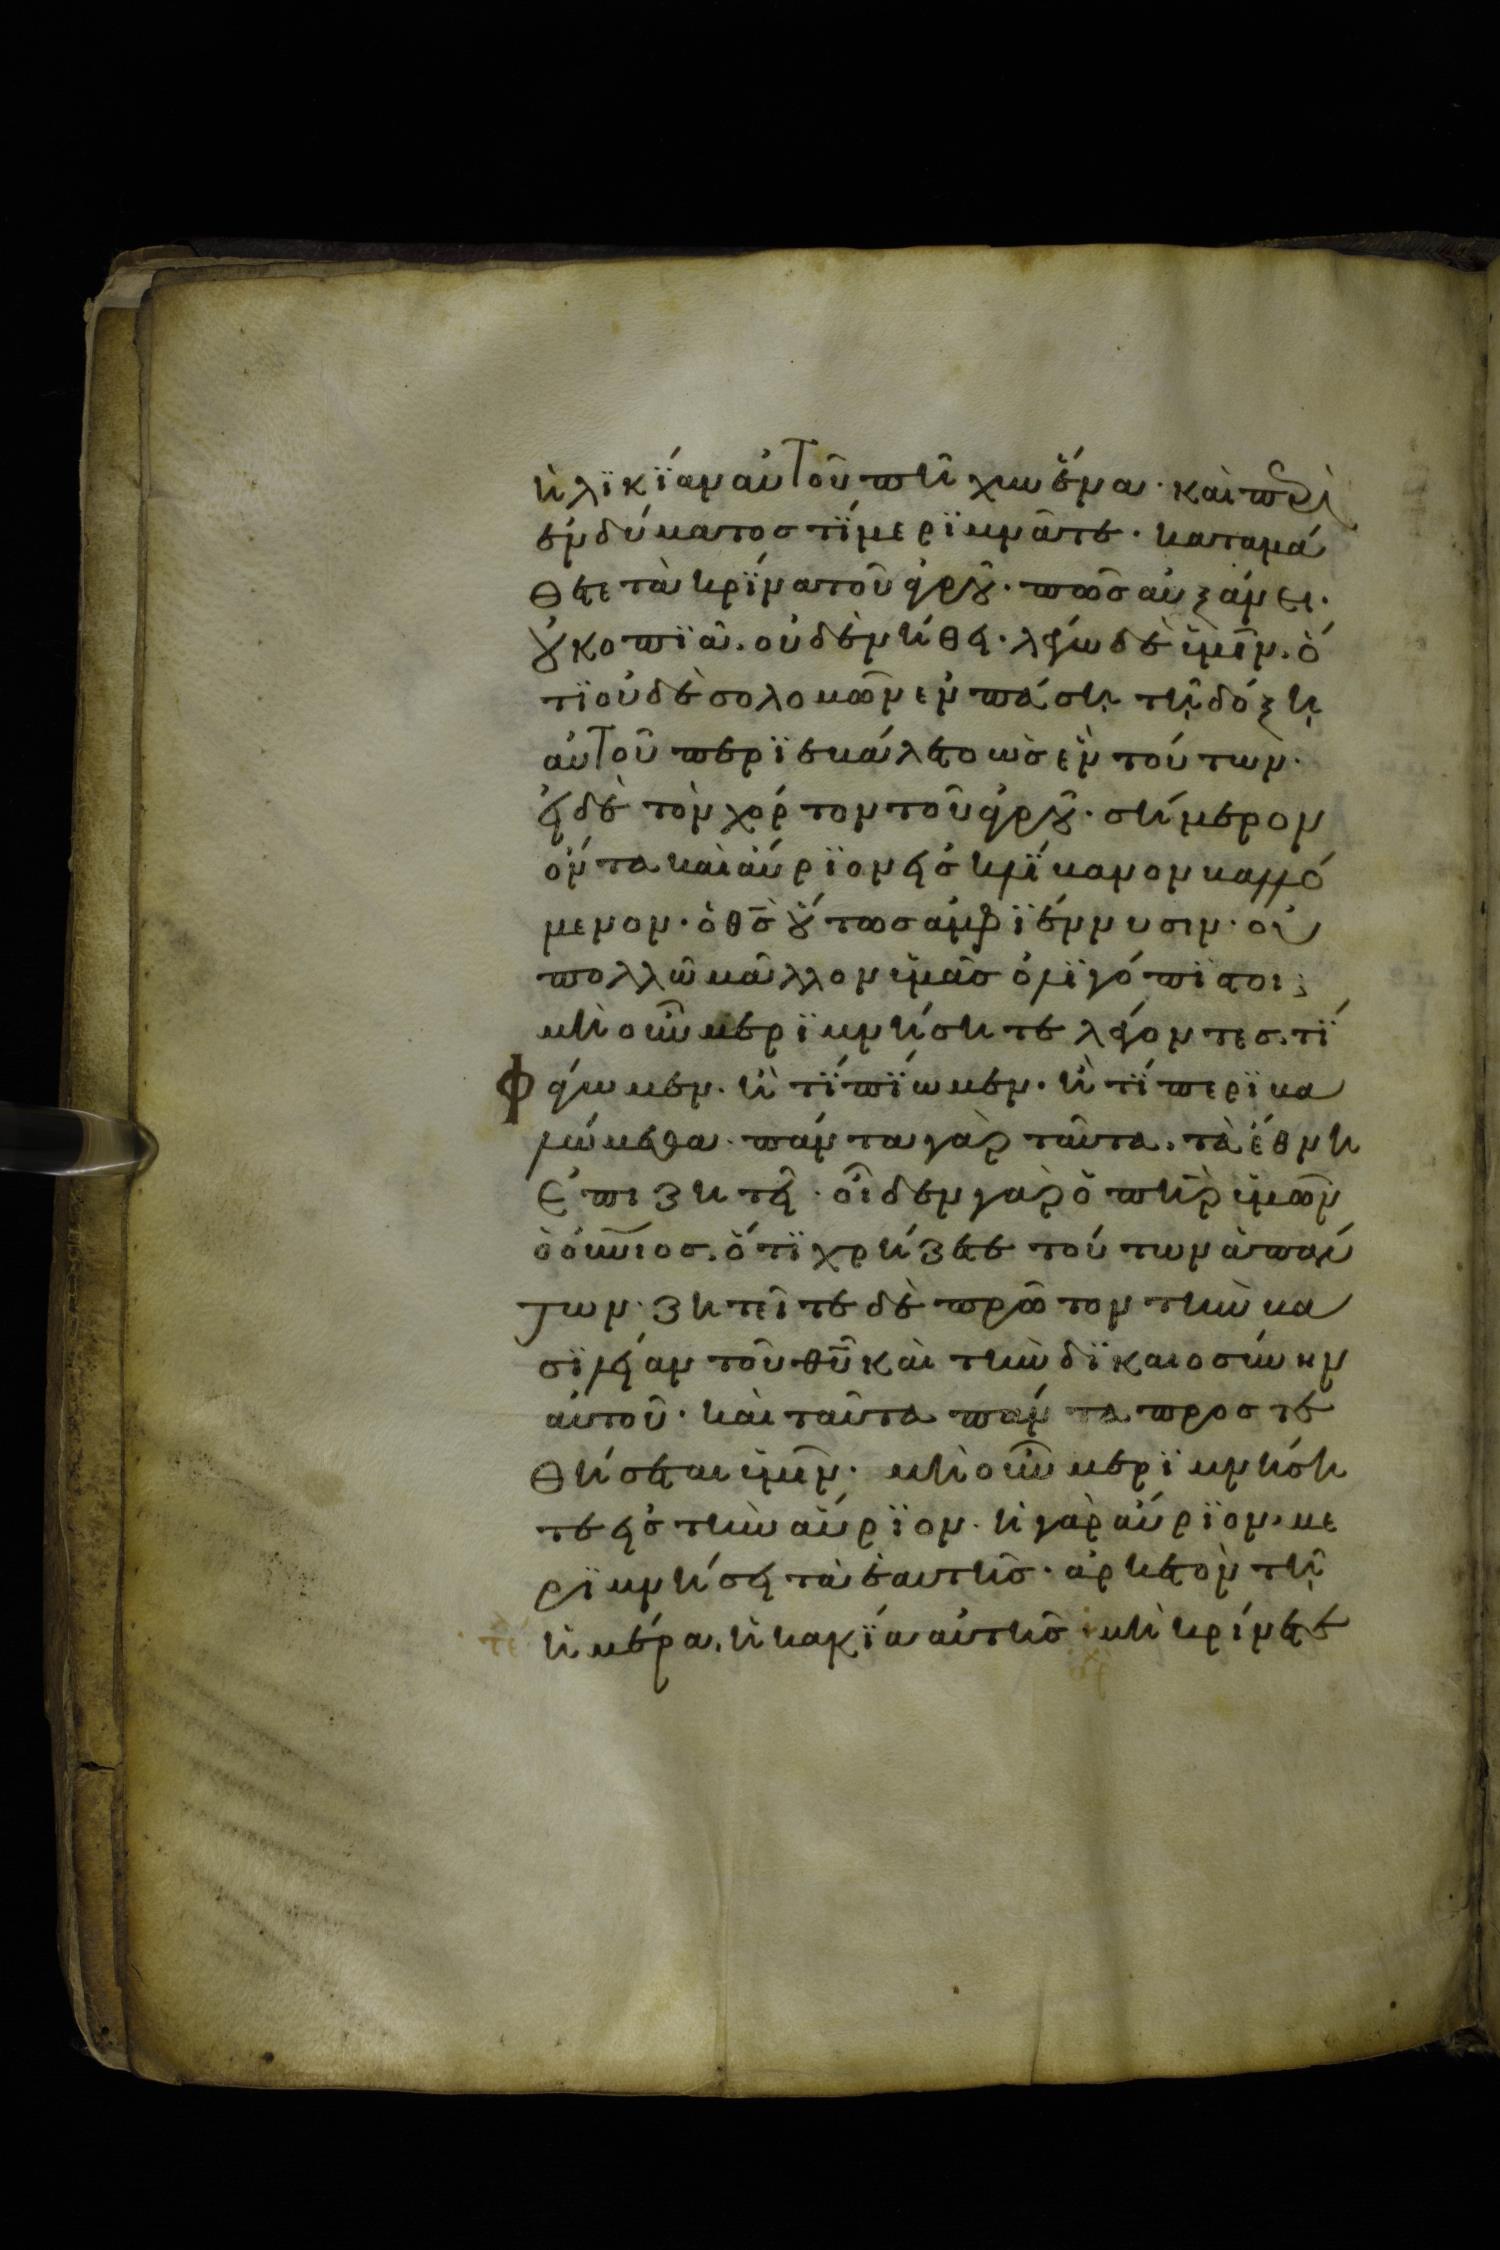 ἡλϊκΐαν αὐτοῦ πῆχυν ἕνα· καὶ περὶ
ἐνδύματος τΐ μερϊμνᾶτε· καταμά
θετε τὰ κρΐνα τοῦ ἀγροῦ· πῶς αὐξάνει·
οὐ κοπϊᾶ. οὐδὲ νήθει· λέγω δὲ ὑμῖν. ὅ
τϊ οὐδὲ σολομῶν ἐν πάσῃ τῇ δόξῃ
αὐτοῦ περϊεβάλετο ὡς ἓν τούτων·
εἰ δὲ τὸν χόρτον τοῦ ἀγροῦ· σήμερον
ὄντα καὶ αὔρϊον εἰς κλΐβανον βαλλό
μενον· ὁ θς οὕτως ἀμφϊέννυσιν· οὐ
πολλῶ μᾶλλον ὑμᾶς ὀλϊγόπϊστοι;
μὴ οὖν μερϊμνήσητε λέγοντες. τΐ
φάγωμεν. ἢ τΐ πΐωμεν. ἢ τΐ περϊβα
λώμεθα· πάντα γὰρ ταῦτα. τὰ ἔθνη
ἐπιζητεῖ· οἶδεν γὰρ ὁ πηρ ὑμῶν
ὁ οὐνιος. ὅτϊ χρήζετε τούτων ἁπάν
των· ζητεῖτε δὲ πρῶτον τὴν βα
σϊλείαν τοῦ θυ καὶ τὴν δϊκαιοσύνην
αὐτοῦ· καὶ ταῦτα πάντα προστε
θήσεται ὑμῖν· μὴ οὖν μερϊμνήση
τε εἰς τὴν αὔρϊον· ἡ γὰρ αὔρϊον. με
ρϊμνήσει τὰ ἑαυτῆς· ἀρκετὸν τῇ
ἡμέρα. ἡ κακΐα αὐτῆς· μὴ κρίνετε